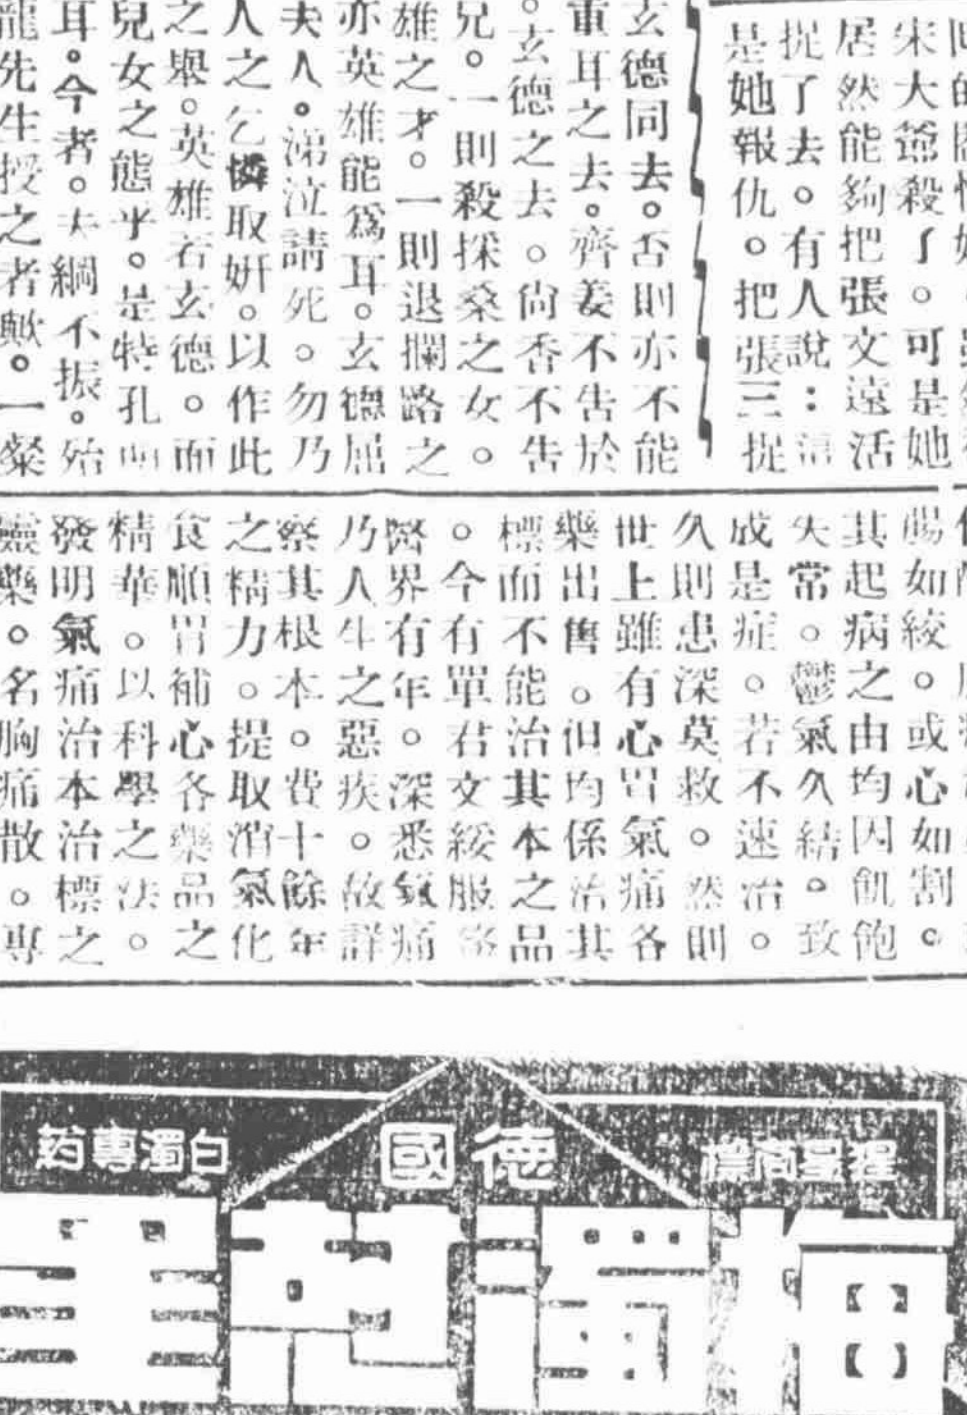 宋大爺殺了。可是她
居然能夠把張文遠活
捉了去。有人說：這
是她報仇。把張三捉
玄德同去。否則亦不能
重耳之去。齊姜不告於
。玄德之去。尙香不告
兄。一則殺採桑之女。
雄之才。一則退攔路之
亦英雄能爲耳。玄德屈
夫人。涕泣請死。勿乃
人之乞憐取姸。以作此
之舉。英雄若玄德。而
兒女之態乎。是特孔明
耳。今者。夫綱不振。殆
龍先生授之者歟。一粲
腸如絞。或心如割。
其起病之由均因飢飽
失常。鬱氣久結。致
成是症。若不速治。
久則患深莫救。然則
世上雖有心胃氣痛各
藥出售。但均係治其
標而不能治其本之品
。今有單君文綏服務
醫界有年。深悉氣痛
乃人生之惡疾。故詳
察其根本。費十餘年
之精力。提取消氣化
食順胃補心各藥品之
精華。以科學之法。
發明氣痛治本治標之
靈藥。名胸痛散。專
德國
白濁專药